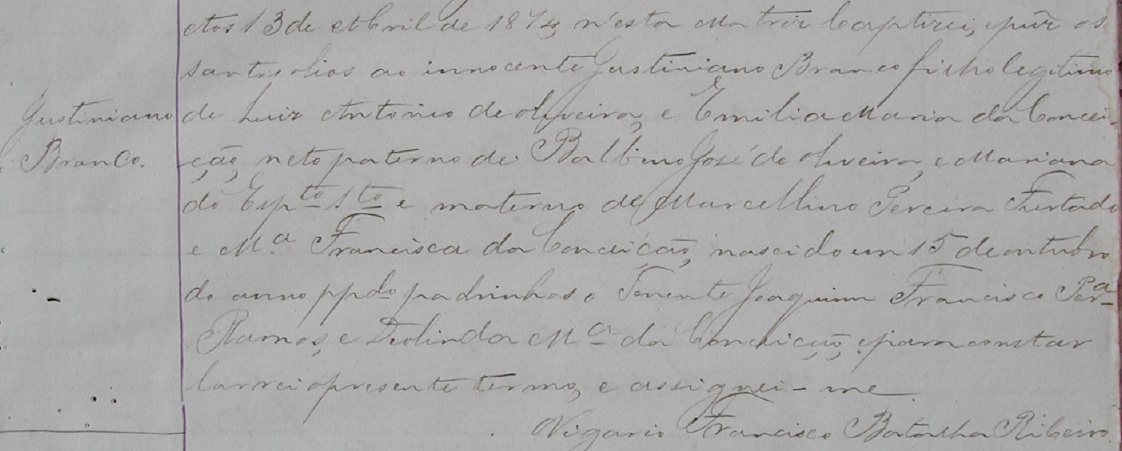 Aos 13 de Abril de 1874, n'esta Matriz baptizei, e puz os
santos olios ao innocente Justiniano Branco filho legitimo
Justiniano
de Luiz Antonio de oliveira, e Emilia Maria da Concei-
Branco.
ção, neto paterno de Balbino José de oliveira, e Mariana
do Espto Sto e materno de Marcellino Pereira Furtado
e Ma. Francisca da Conceição, nascido em 15 de outubro
do anno ppdo padrinhos o Tenente Joaquim Francisco Pera
Ramos, e Deolinda Ma da Conceição, e para constar
lavrei o presente termo, e assignei-me
Vigario Francisco Batalha Ribeiro